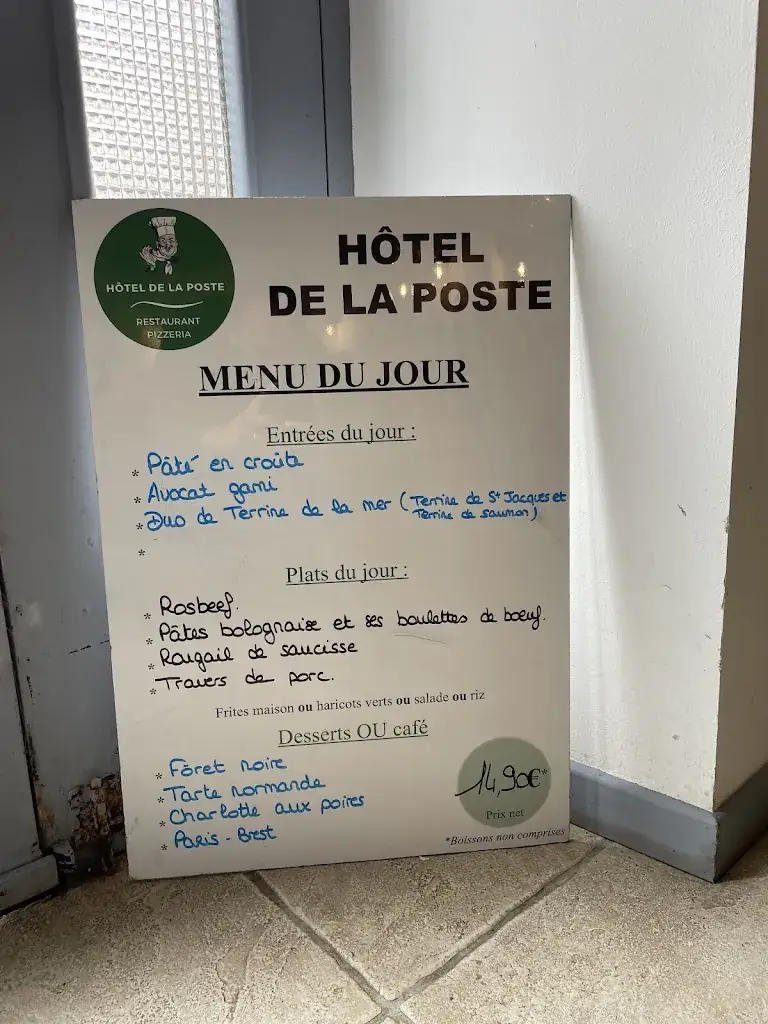 HÔTEL DE LA POSTE
RESTAURANT
PIZZERIA
HÔTEL
DE LA POSTE
MENU DU JOUR
Entrées du jour :
* Pâté en croûte
* Avocat garni
* Duo de Terrine de la mer (Terrine de St Jacques et
Terrine de saumon)
*
Plats du jour :
* Rosbeef.
* Pâtes bolognaise et ses boulettes de boeuf.
* Rougail de saucisse
* Travers de porc.
Frites maison ou haricots verts ou salade ou riz
Desserts OU café
* Fôret noire
* Tarte normande
* Charlotte aux poires
* Paris - Brest
14,90€*
Prix net
*Boissons non comprises